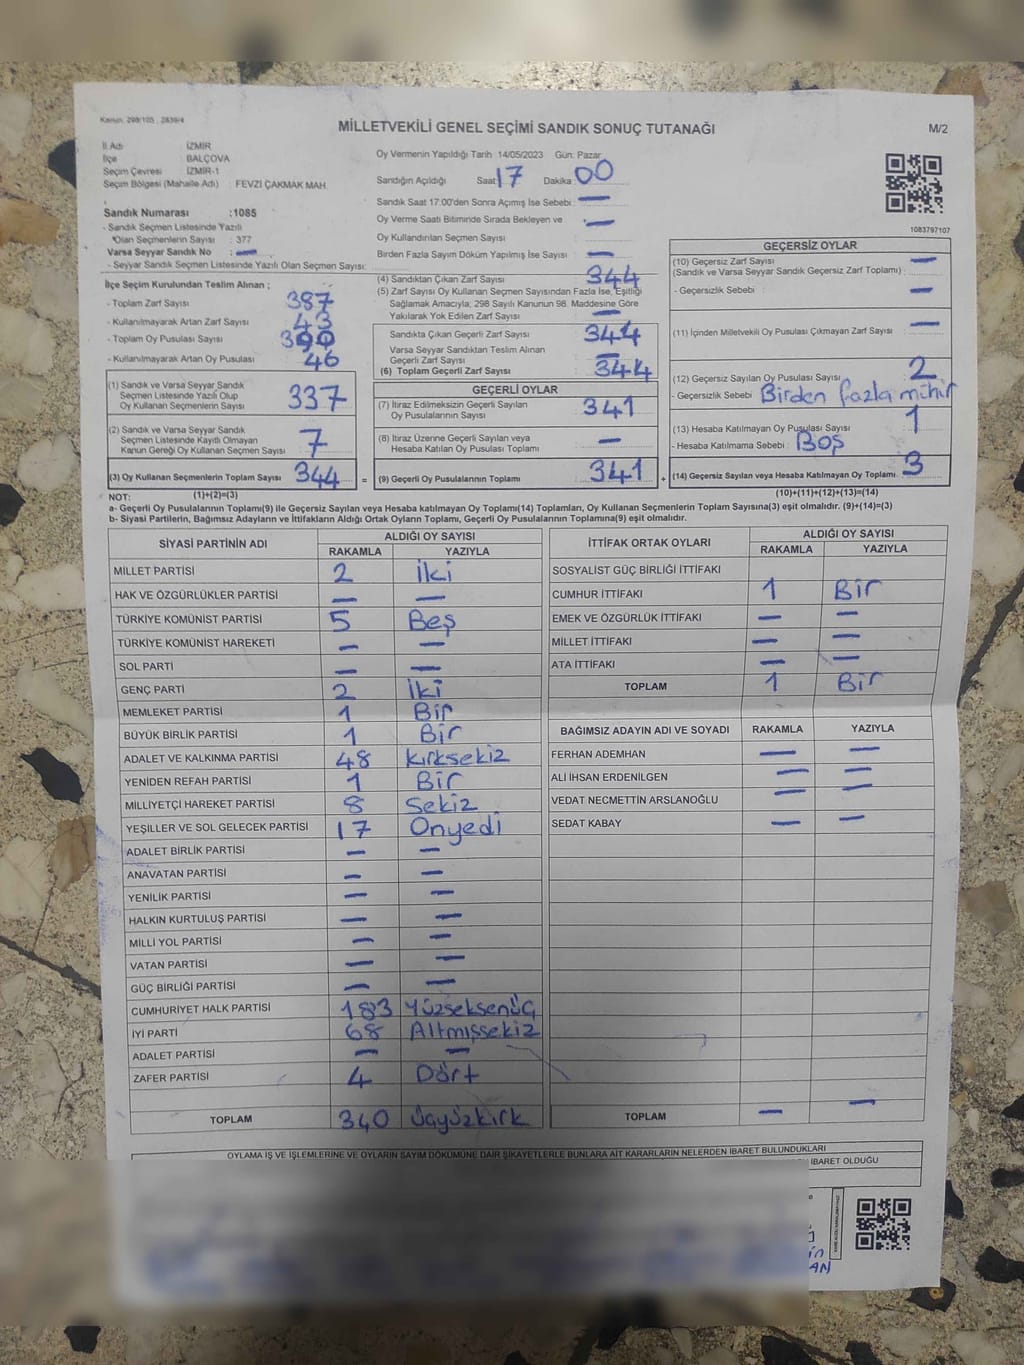 Kanun: 298/105 , 2839/4
MİLLETVEKİLİ GENEL SEÇİMİ SANDIK SONUÇ TUTANAĞI
M/2
İl Adı : İZMİR
İlçe : BALÇOVA
Seçim Çevresi : İZMİR-1
Seçim Bölgesi (Mahalle Adı) : FEVZİ ÇAKMAK MAH.
Sandık Numarası : 1085
- Sandık Seçmen Listesinde Yazılı
Olan Seçmenlerin Sayısı : 377
Varsa Seyyar Sandık No : —
- Seyyar Sandık Seçmen Listesinde Yazılı Olan Seçmen Sayısı:
Oy Vermenin Yapıldığı Tarih 14/05/2023 Gün: Pazar
Sandığın Açıldığı Saat 17 Dakika 00
Sandık Saat 17:00'den Sonra Açımış İse Sebebi : —
Oy Verme Saati Bitiminde Sırada Bekleyen ve —
Oy Kullandırılan Seçmen Sayısı :
Birden Fazla Sayım Döküm Yapılmış İse Sayısı : —
1083797107
İlçe Seçim Kurulundan Teslim Alınan ;
- Toplam Zarf Sayısı : 387
- Kullanılmayarak Artan Zarf Sayısı : 43
- Toplam Oy Pusulası Sayısı : 390
- Kullanılmayarak Artan Oy Pusulası : 46
(1) Sandık ve Varsa Seyyar Sandık
Seçmen Listesinde Yazılı Olup
Oy Kullanan Seçmenlerin Sayısı : 337
(2) Sandık ve Varsa Seyyar Sandık
Seçmen Listesinde Kayıtlı Olmayan
Kanun Gereği Oy Kullanan Seçmen Sayısı : 7
(3) Oy Kullanan Seçmenlerin Toplam Sayısı : 344
(1)+(2)=(3)
(4) Sandıktan Çıkan Zarf Sayısı : 344
(5) Zarf Sayısı Oy Kullanan Seçmen Sayısından Fazla İse, Eşitliği
Sağlamak Amacıyla; 298 Sayılı Kanunun 98. Maddesine Göre
Yakılarak Yok Edilen Zarf Sayısı : —
Sandıkta Çıkan Geçerli Zarf Sayısı : 344
Varsa Seyyar Sandıktan Teslim Alınan
Geçerli Zarf Sayısı : —
(6) Toplam Geçerli Zarf Sayısı : 344
GEÇERLİ OYLAR
(7) İtiraz Edilmeksizin Geçerli Sayılan
Oy Pusulalarının Sayısı : 341
(8) İtiraz Üzerine Geçerli Sayılan veya
Hesaba Katılan Oy Pusulası Toplamı : —
= (9) Geçerli Oy Pusulalarının Toplamı : 341
GEÇERSİZ OYLAR
(10) Geçersiz Zarf Sayısı
(Sandık ve Varsa Seyyar Sandık Geçersiz Zarf Toplamı) : —
- Geçersizlik Sebebi : —
(11) İçinden Milletvekili Oy Pusulası Çıkmayan Zarf Sayısı : —
(12) Geçersiz Sayılan Oy Pusulası Sayısı : 2
- Geçersizlik Sebebi : Birden fazla mühür
(13) Hesaba Katılmayan Oy Pusulası Sayısı : 1
- Hesaba Katılmama Sebebi : Boş
+ (14) Geçersiz Sayılan veya Hesaba Katılmayan Oy Toplamı : 3
(10)+(11)+(12)+(13)=(14)
NOT:
a- Geçerli Oy Pusulalarının Toplamı(9) ile Geçersiz Sayılan veya Hesaba katılmayan Oy Toplamı(14) Toplamları, Oy Kullanan Seçmenlerin Toplam Sayısına(3) eşit olmalıdır. (9)+(14)=(3)
b- Siyasi Partilerin, Bağımsız Adayların ve İttifakların Aldığı Ortak Oyların Toplamı, Geçerli Oy Pusulalarının Toplamına(9) eşit olmalıdır.
SİYASİ PARTİNİN ADI ALDIĞI OY SAYISI
RAKAMLA YAZIYLA
MİLLET PARTİSİ 2 İki
HAK VE ÖZGÜRLÜKLER PARTİSİ — —
TÜRKİYE KOMÜNİST PARTİSİ 5 Beş
TÜRKİYE KOMÜNİST HAREKETİ — —
SOL PARTİ — —
GENÇ PARTİ 2 İki
MEMLEKET PARTİSİ 1 Bir
BÜYÜK BİRLİK PARTİSİ 1 Bir
ADALET VE KALKINMA PARTİSİ 48 Kırksekiz
YENİDEN REFAH PARTİSİ 1 Bir
MİLLİYETÇİ HAREKET PARTİSİ 8 Sekiz
YEŞİLLER VE SOL GELECEK PARTİSİ 17 Onyedi
ADALET BİRLİK PARTİSİ — —
ANAVATAN PARTİSİ — —
YENİLİK PARTİSİ — —
HALKIN KURTULUŞ PARTİSİ — —
MİLLİ YOL PARTİSİ — —
VATAN PARTİSİ — —
GÜÇ BİRLİĞİ PARTİSİ — —
CUMHURİYET HALK PARTİSİ 183 Yüzseksenüç
İYİ PARTİ 68 Altmışsekiz
ADALET PARTİSİ — —
ZAFER PARTİSİ 4 Dört
TOPLAM 340 Üçyüzkırk
İTTİFAK ORTAK OYLARI ALDIĞI OY SAYISI
RAKAMLA YAZIYLA
SOSYALİST GÜÇ BİRLİĞİ İTTİFAKI
CUMHUR İTTİFAKI 1 Bir
EMEK VE ÖZGÜRLÜK İTTİFAKI — —
MİLLET İTTİFAKI — —
ATA İTTİFAKI — —
TOPLAM 1 Bir
BAĞIMSIZ ADAYIN ADI VE SOYADI RAKAMLA YAZIYLA
FERHAN ADEMHAN — —
ALİ İHSAN ERDENİLGEN — —
VEDAT NECMETTİN ARSLANOĞLU — —
SEDAT KABAY — —
TOPLAM — —
OYLAMA İŞ VE İŞLEMLERİNE VE OYLARIN SAYIM DÖKÜMÜNE DAİR ŞİKAYETLERLE BUNLARA AİT KARARLARIN NELERDEN İBARET BULUNDUKLARI
İBARET OLDUĞU